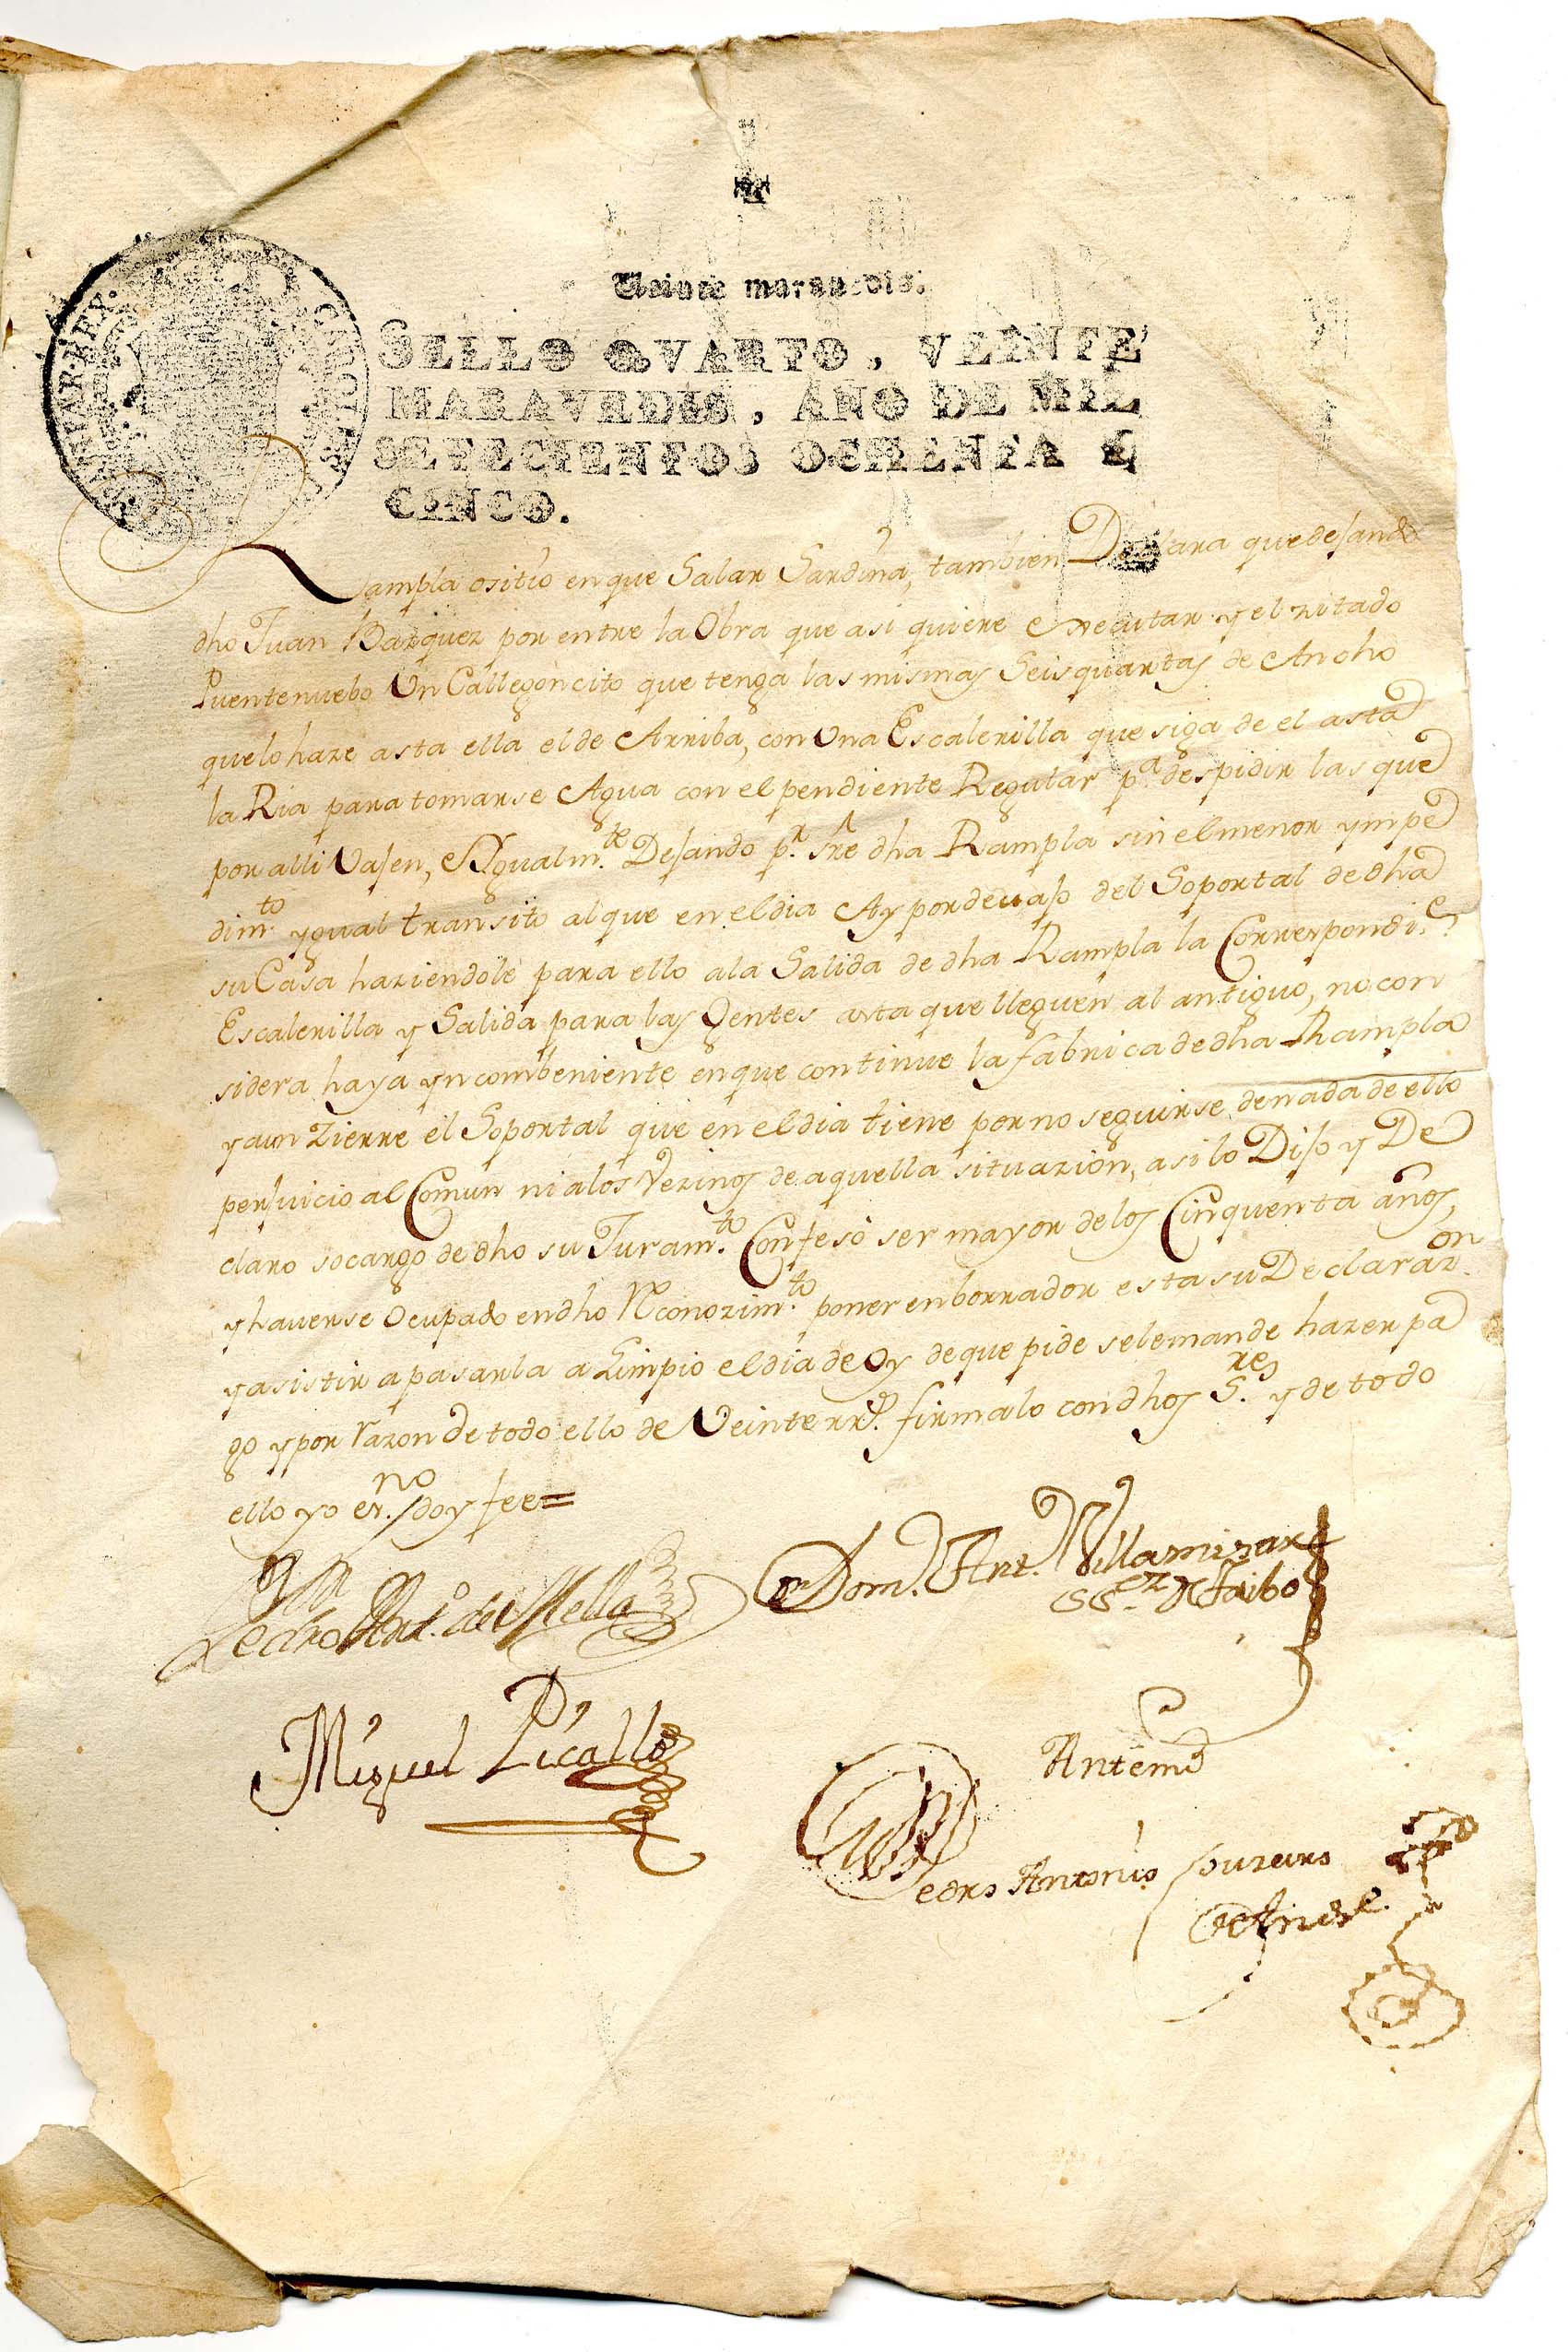 Veinte maravedis.
SELLO QVARTO, VEINTE
MARAVEDIS, AÑO DE MIL
SETECIENTOS OCHENTA Y
CINCO.
Rampla ositio en que Salar Sardina, tambien Declara que desando
dho Juan Bazquez por entre la Obra que asi quiere executar y el zitado
Puente nuebo Un Callegoncito que tenga las mismas Seis quartas de Ancho
que lo haze asta ella el de Arriba, con Una Escalerilla que siga de el asta
la Ria para tomarse Agua con el pendiente Regular p.a despidir las que
por alli Vasen, e Ygualm.te Desando p.r sre dha Rampla sin el menor ympe
dim.to ygual transito al que en el dia Ay por devaso del Soportal de dha
su Casa haziendole para ello a la Salida de dha Rampla la Correspondi.e
Escalerilla y Salida para las Gentes asta que lleguen al antiguo, no con
sidera haya yncombeniente en que continue la fabrica de dha Rampla
y aun Zierre el Soportal que en el dia tiene por no seguirse de nada de ello
persuicio al Comun ni a los Vezinos de aquella situazion, asi lo Diso y De
claro socargo de dho su Juram.to Confesó ser mayor de los Cinquenta años,
y haverse Ocupado en dho Reconozim.to poner en borrador esta su Declaraz.on
y asistir a pasarla a Limpio el dia de Oy de que pide se le mande hazer pa
go y por razon de todo ello de Veinte rr.s firmalo con dhos S.res y de todo
ello yo es.no doy fee=
Pedro Ant.o de Mella
Dom. Ant. Villamizar
Miguel Picallo
Antemi
Pedro Antonio Loureiro